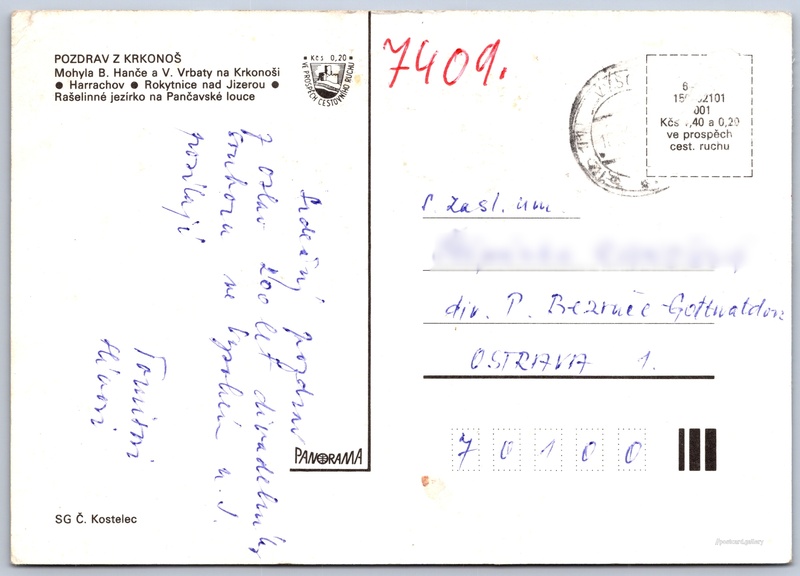 POZDRAV Z KRKONOŠ
Mohyla B. Hanče a V. Vrbaty na Krkonoši
● Harrachov ● Rokytnice nad Jizerou ●
Rašelinné jezírko na Pančavské louce
Kčs 0,20
VE PROSPĚCH CESTOVNÍHO RUCHU
Srdečný pozdrav
z oslav 200 let divadelního
souboru ve Vysokém n. J.
posílají
PANORAMA
SG Č. Kostelec
7409.
6-
15 2101
001
Kčs 1,40 a 0,20
ve prospěch
cest. ruchu
s. zasl. um.
div. P. Bezruče - Gottwaldova
OSTRAVA 1.
7 0 1 0 0
@postcard.gallery